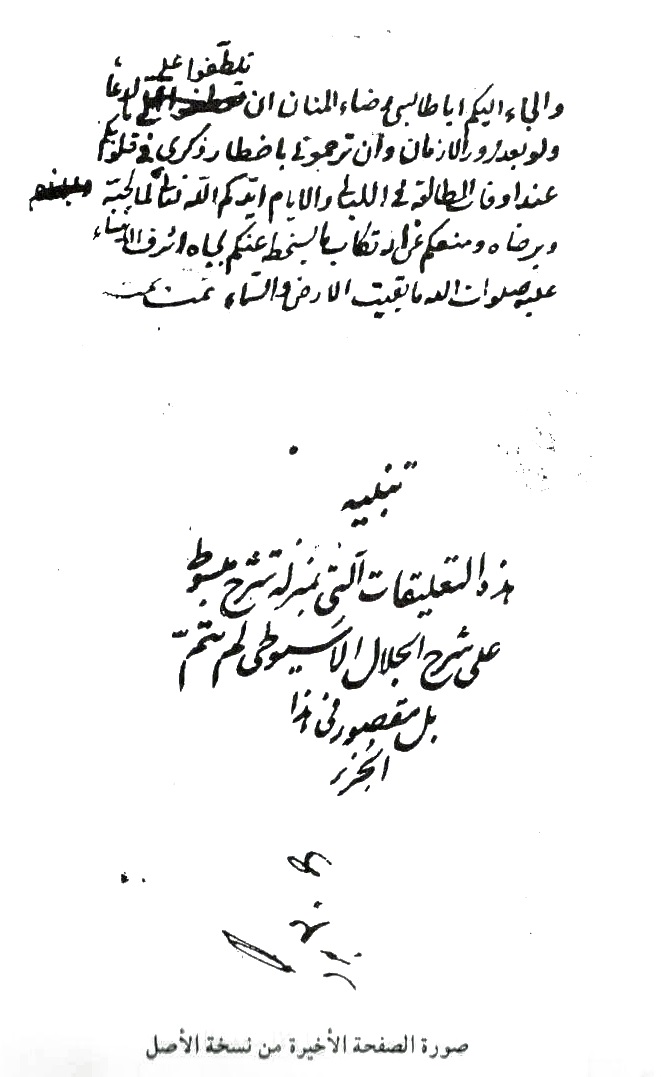 تلطفوا على
والرجاء اليكم ايا طالبى رضاء المنان ان بالدعاء
ولو بعد مرور الازمان وان ترحمونى باخطار ذكرى فى قلوبكم
عند اوقات المطالعة فى الليالى والايام ايدكم الله تعالى لما يحبه
وبرضاه ومنعكم عن ارتكاب ما يسخطه عنكم بجاه اشرف الانبياء
عليه صلوات الله ما بقيت الارض والسماء تمت تمت
تنبيه
هذه التعليقات التى بمنزلة شرح مبسوط
على شرح الجلال الاسيوطى لم يتمّ
بل مقصور فى هذا
الجزء
صورة الصفحة الأخيرة من نسخة الأصل